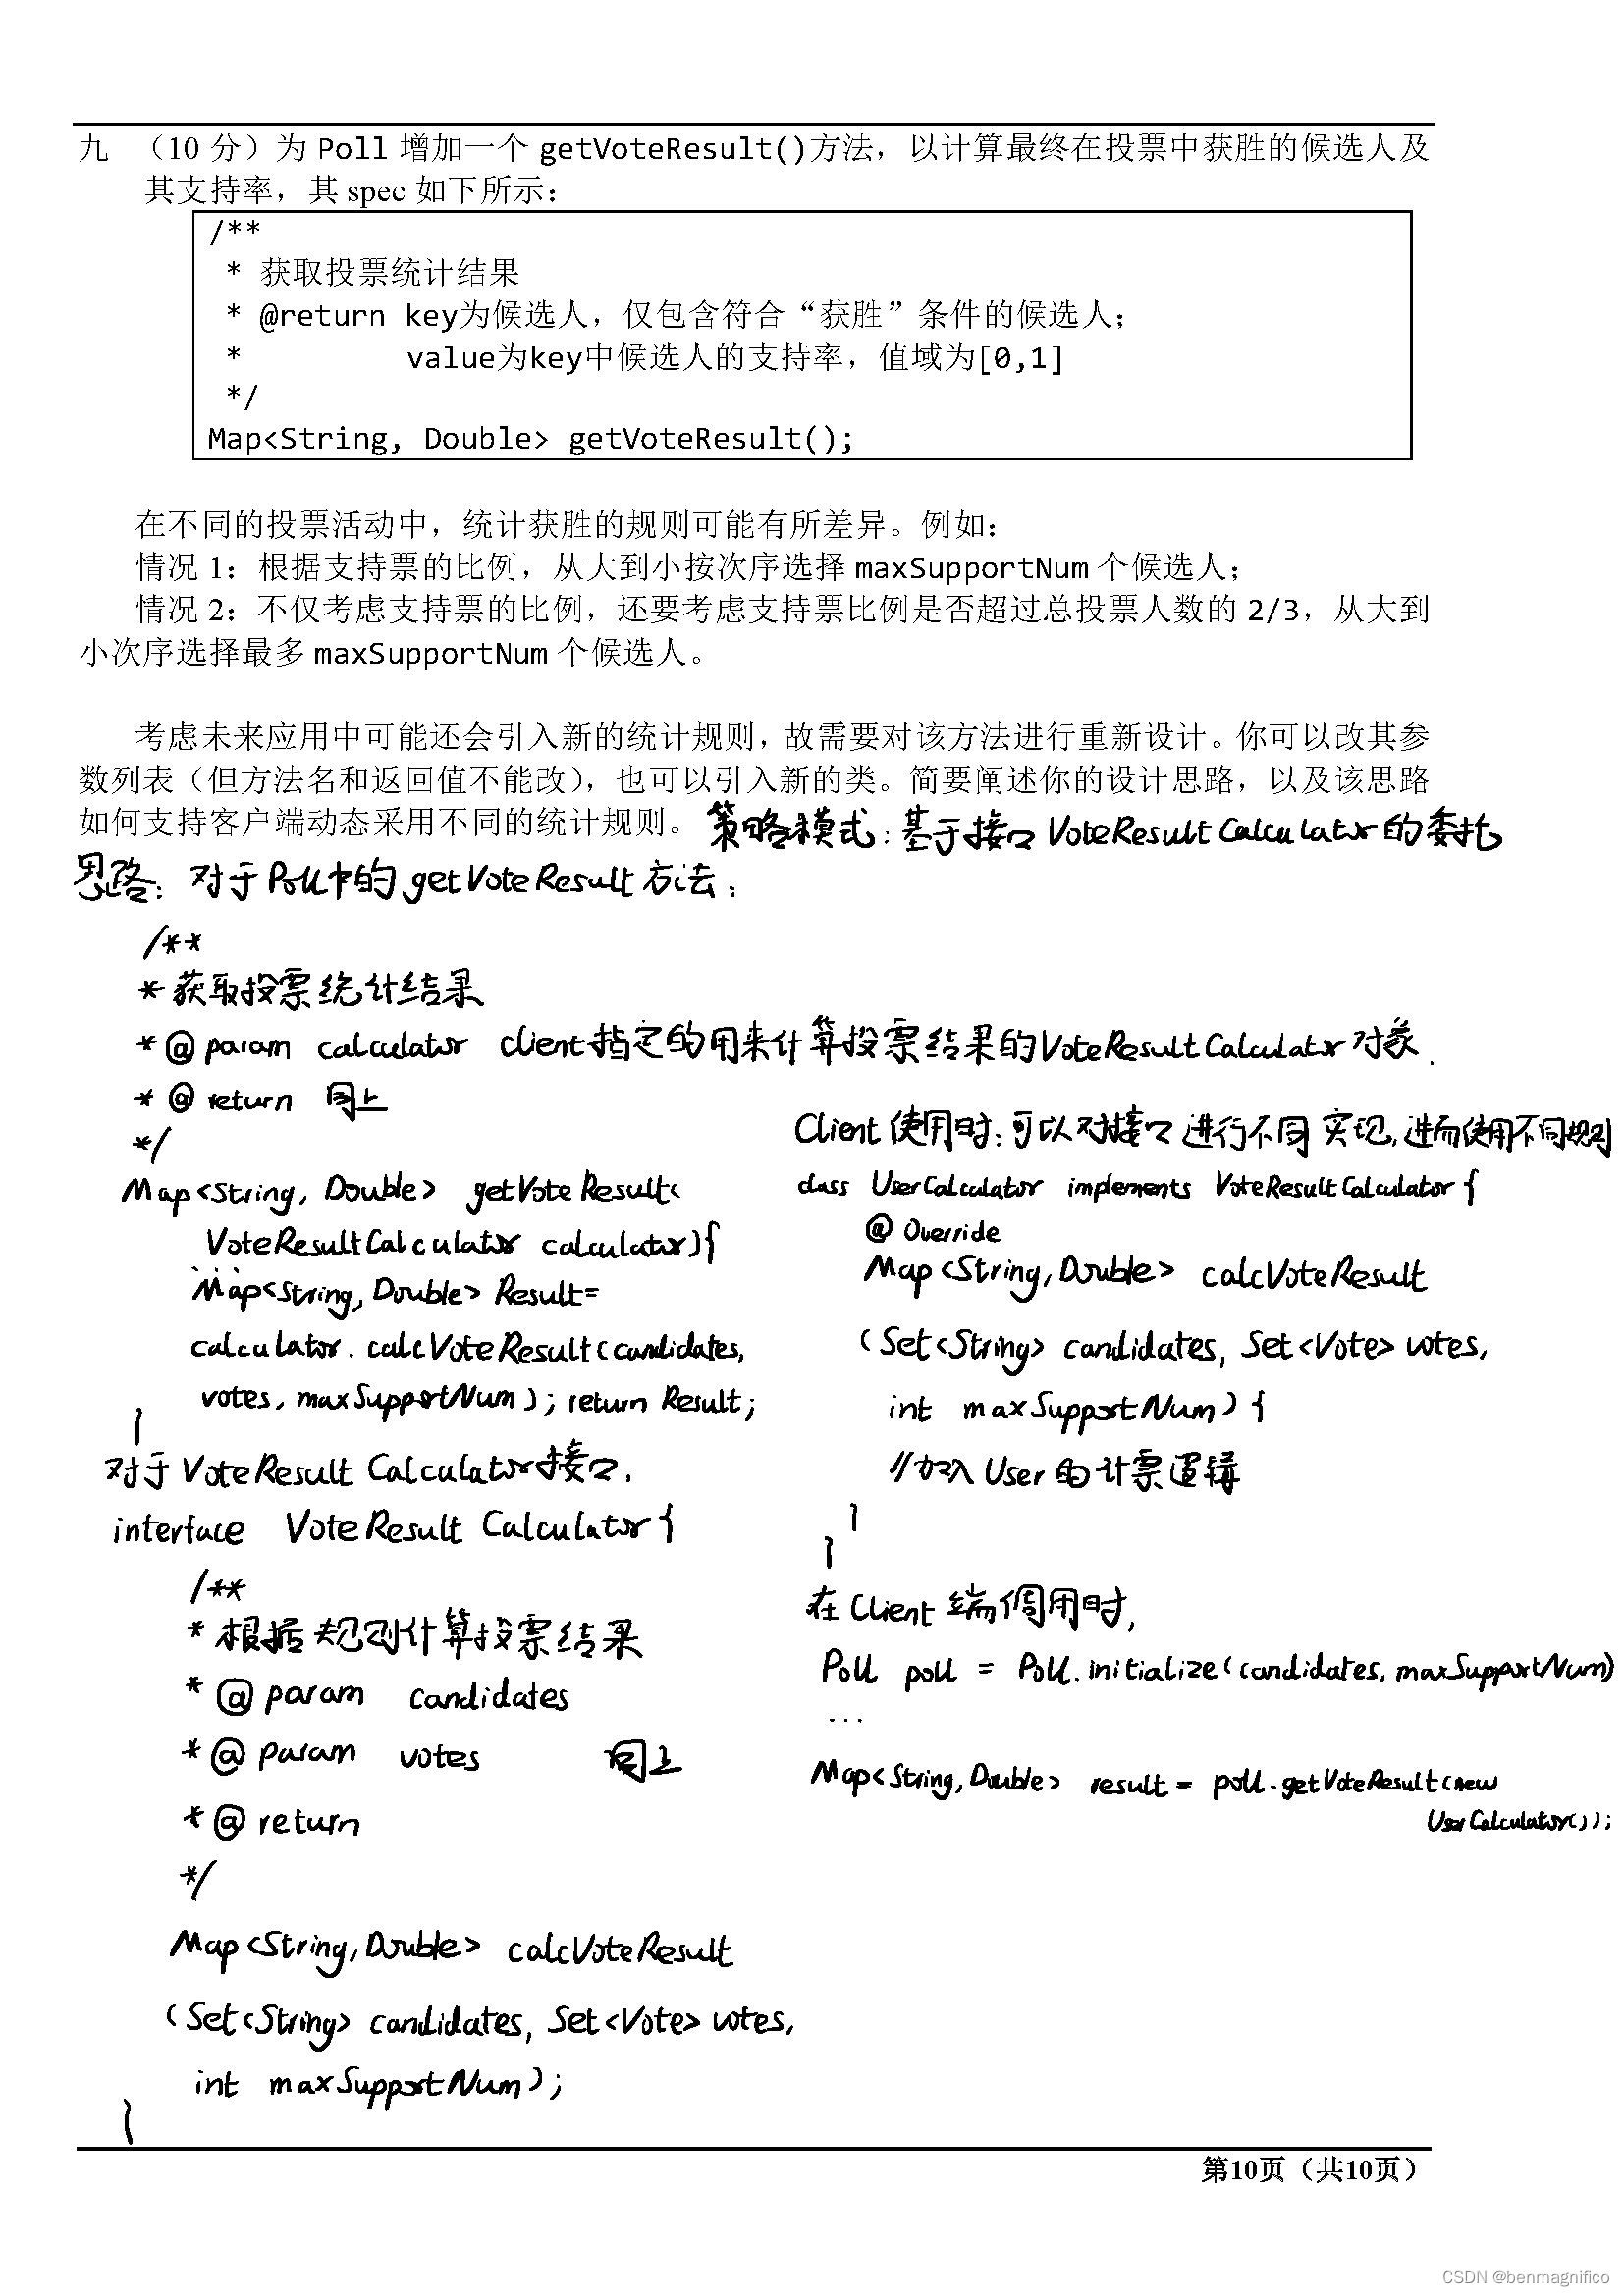 九 （10 分）为 Poll 增加一个 getVoteResult()方法，以计算最终在投票中获胜的候选人及
其支持率，其 spec 如下所示：
/**
* 获取投票统计结果
* @return key为候选人，仅包含符合“获胜”条件的候选人；
* value为key中候选人的支持率，值域为[0,1]
*/
Map<String, Double> getVoteResult();
在不同的投票活动中，统计获胜的规则可能有所差异。例如：
情况 1：根据支持票的比例，从大到小按次序选择 maxSupportNum 个候选人；
情况 2：不仅考虑支持票的比例，还要考虑支持票比例是否超过总投票人数的 2/3，从大到
小次序选择最多 maxSupportNum 个候选人。
考虑未来应用中可能还会引入新的统计规则，故需要对该方法进行重新设计。你可以改其参
数列表（但方法名和返回值不能改），也可以引入新的类。简要阐述你的设计思路，以及该思路
如何支持客户端动态采用不同的统计规则。 策略模式：基于接口 VoteResultCalculator 的委托
思路：对于Poll中的 getVoteResult 方法：
/**
* 获取投票统计结果
* @param calculator client指定的用来计算投票结果的VoteResultCalculator对象.
* @return 同上
*/
Map<String, Double> getVoteResult(
VoteResultCalculator calculator){
Map<String, Double> Result=
calculator.calcVoteResult(candidates,
votes, maxSupportNum); return Result;
}
对于 VoteResultCalculator接口.
interface VoteResultCalculator{
/**
* 根据规则计算投票结果
* @param candidates
* @param votes 同上
* @return
*/
Map<String, Double> calcVoteResult
(Set<String> candidates, Set<Vote> votes,
int maxSupportNum);
}
Client 使用时：可以对接口进行不同实现,进而使用不同规则
class UserCalculator implements VoteResultCalculator{
@Override
Map<String, Double> calcVoteResult
(Set<String> candidates, Set<Vote> votes,
int maxSupportNum){
//加入User的计票逻辑
}
}
在Client端调用时,
Poll poll = Poll.initialize(candidates, maxSupportNum)
...
Map<String, Double> result = poll.getVoteResult(new
UserCalculator());
第10页（共10页）
CSDN @benmagnifico